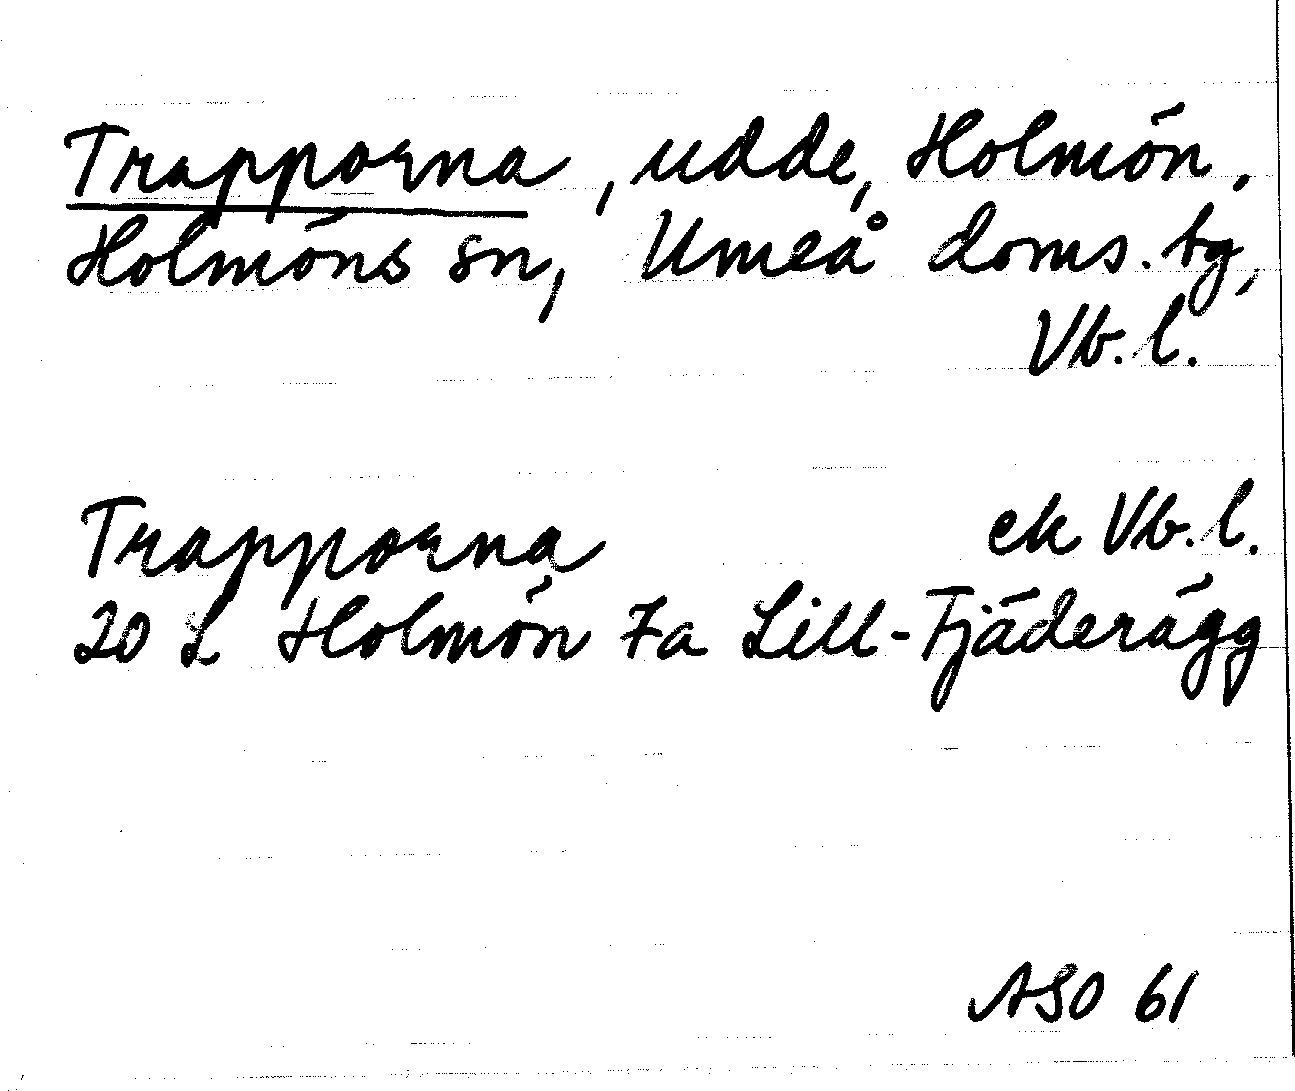 Trapporna, udde, Holmön,
Holmöns sn, Umeå doms. tg,
Vb. l.
Trapporna ek Vb. l.
20 L Holmön 7a Lill-Fjäderägg
ASO 61